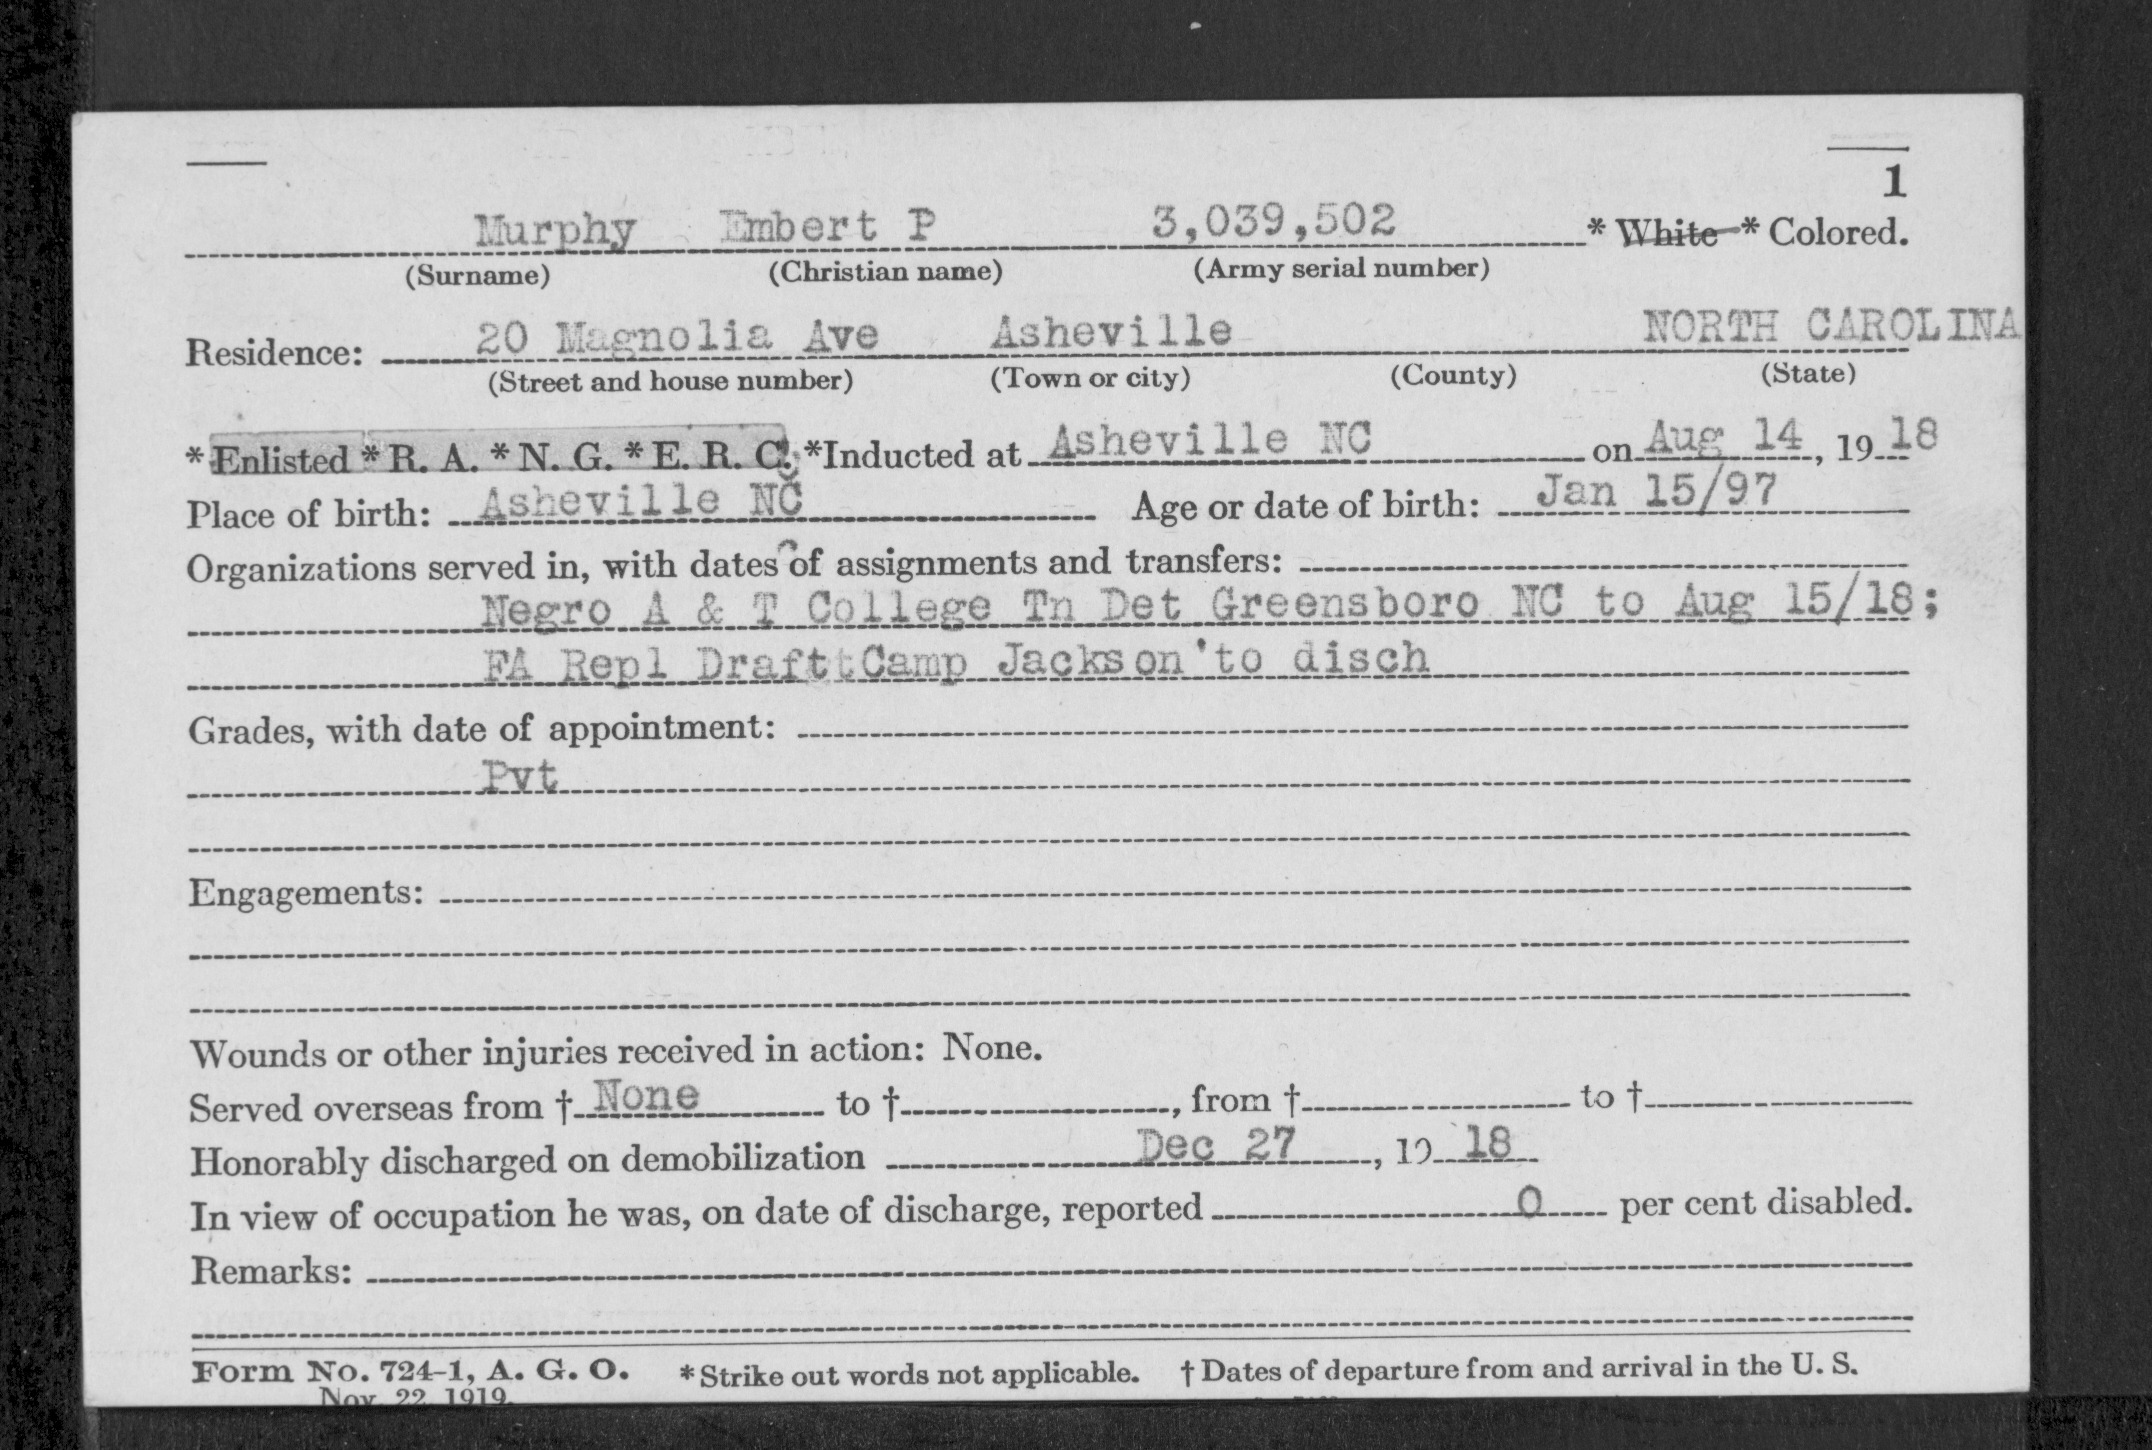 1
Murphy Embert P 3,039,502 * White * Colored.
(Surname) (Christian name) (Army serial number)
Residence: 20 Magnolia Ave Asheville NORTH CAROLINA
(Street and house number) (Town or city) (County) (State)
* Enlisted * R. A. * N. G. * E. R. C. *Inducted at Asheville NC on Aug 14, 19 18
Place of birth: Asheville NC Age or date of birth: Jan 15/97
Organizations served in, with dates of assignments and transfers:
Negro A & T College Tn Det Greensboro NC to Aug 15/18;
FA Repl Draftt Camp Jackson to disch
Grades, with date of appointment:
Pvt
Engagements:
Wounds or other injuries received in action: None.
Served overseas from † None to †, from † to †
Honorably discharged on demobilization Dec 27, 19 18
In view of occupation he was, on date of discharge, reported 0 per cent disabled.
Remarks:
Form No. 724-1, A. G. O. * Strike out words not applicable. † Dates of departure from and arrival in the U. S.
Nov. 22, 1919.